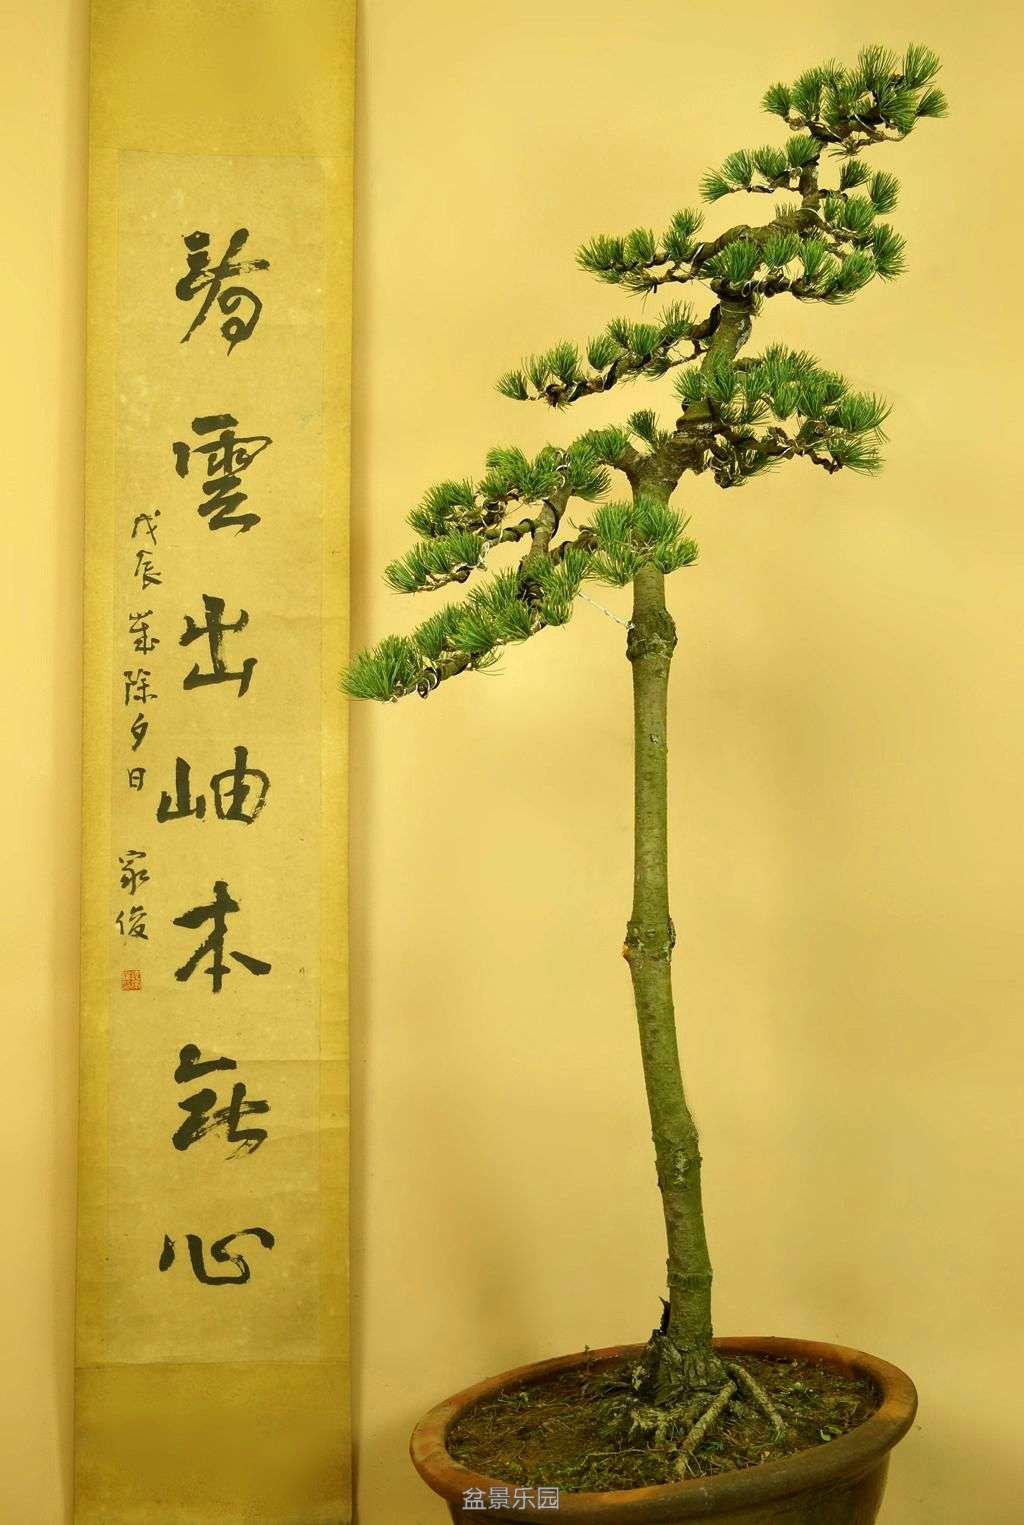 看雲出岫本無心
戊辰歲除夕日 家俊
盆景乐园